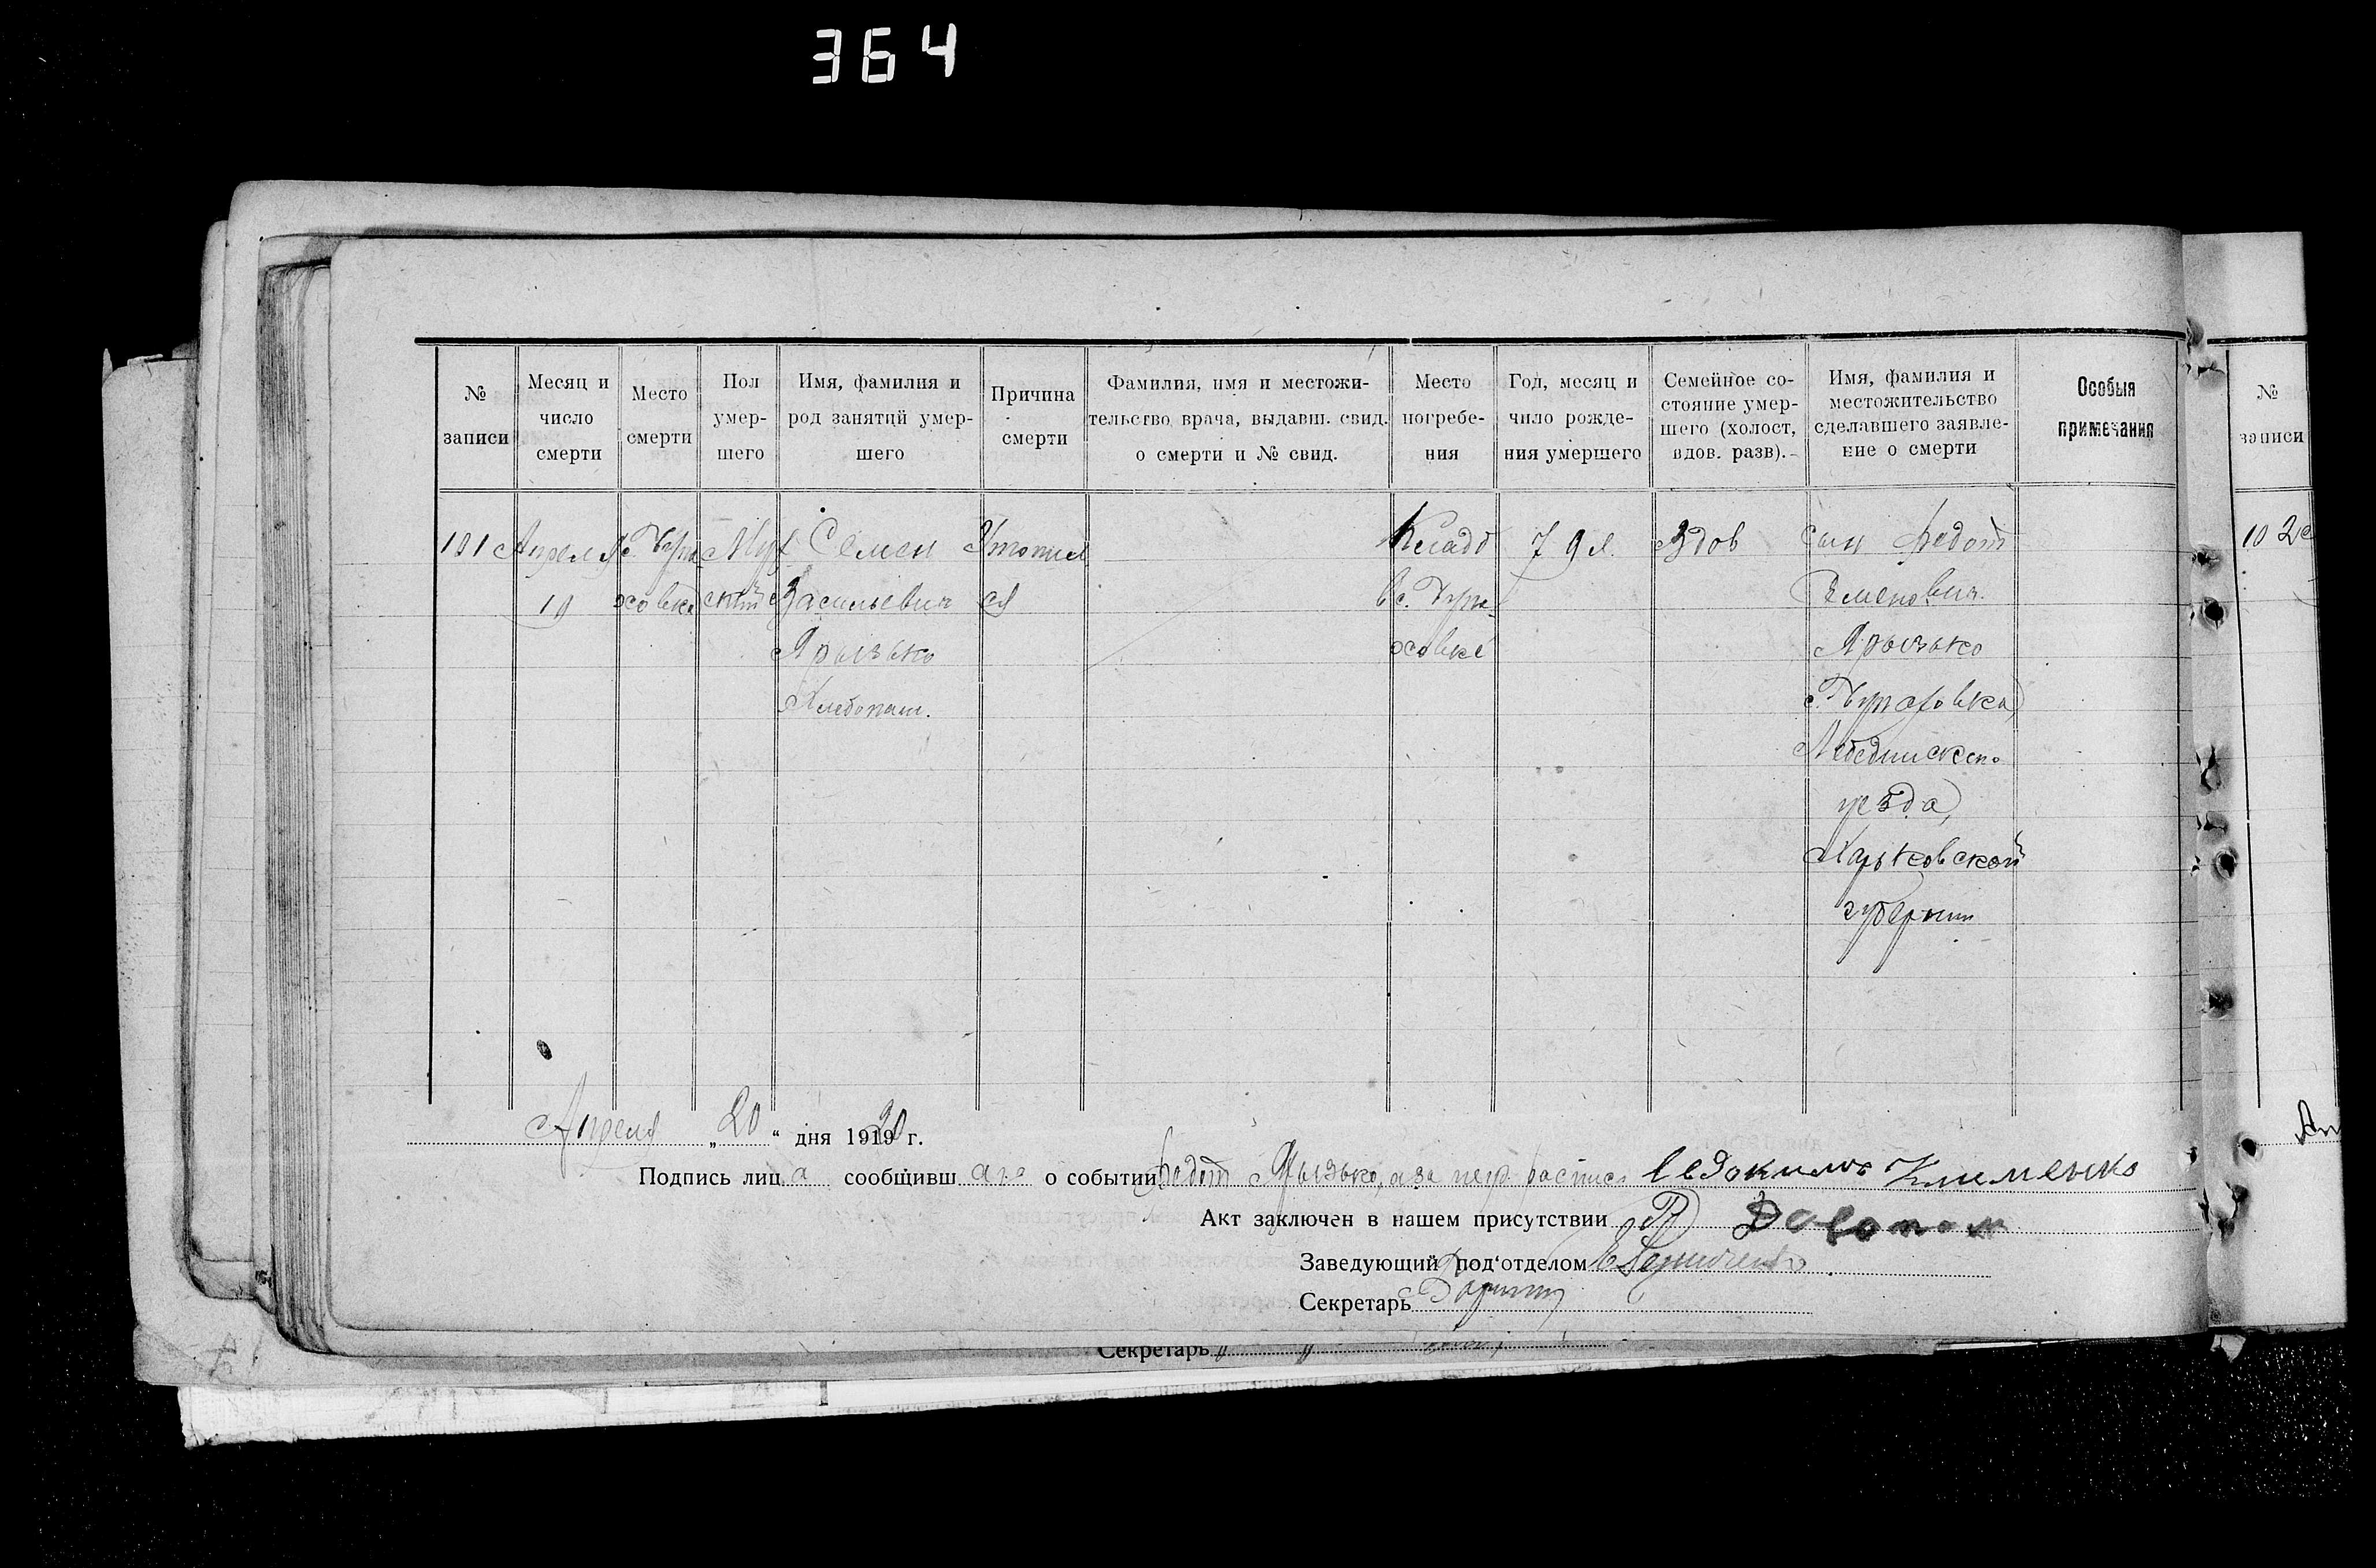 364
№ записи
Месяц и число смерти
Место смерти
Пол умер-шего
Имя, фамилия и род занятий умер-шего
Причина смерти
Фамилия, имя и местожи-тельство врача, выдавш. свид. о смерти и № свид.
Место погребе-ния
Год, месяц и чило рожде-ния умершего
Семейное со-стояние умер-шего (холост, вдов. разв).
Имя, фамилия и местожительство сделавшего заявле-ние о смерти
Особыя примечания
№ записи
101
Апреля
19
Муж
ский
Семен
Васильевич
Ярызько
Хлебопаш.
Утопил
ся
Кладб
в с.
ховке
79 л.
Вдов
Сын Федот
Семенович
Ярызько
Лебединского
уезда,
Харьковской
губернии
102
Апреля „20“ дня 1920 г.
Подпись лица сообщившаго о событии Федот Ярызько, а за негр. распис Евдоким Клименко
Акт заключен в нашем присутствии
Заведующий под'отделом
Секретарь
Секретарь